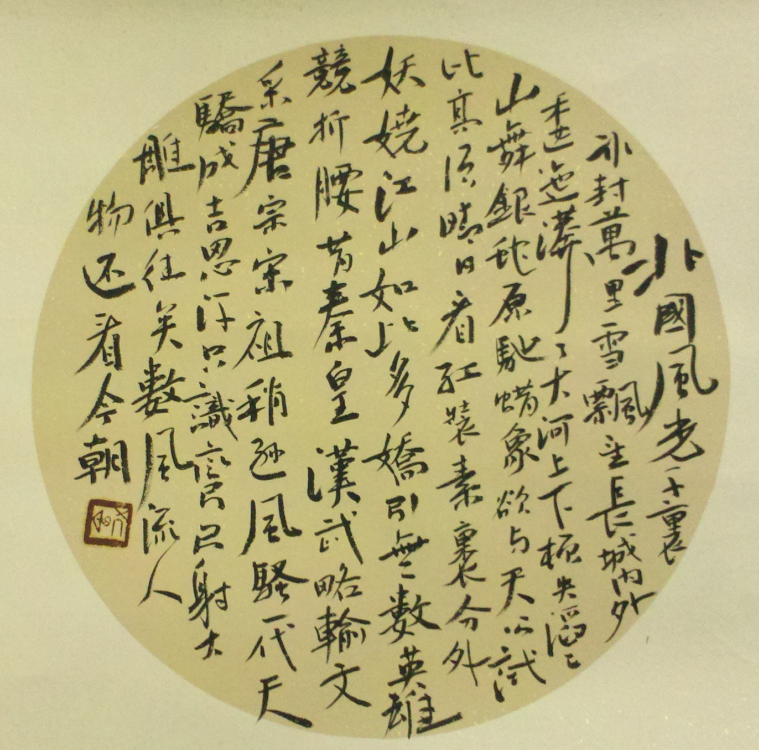 北國風光千裏
冰封萬里雪飄望長城內外
大河上下頓失滔〻
山舞銀蛇原馳蜡象欲与天公試
比高須晴日看紅裝素裹分外
妖嬈江山如此多嬌引無數英雄
競折腰昔秦皇漢武略輸文
采唐宗宋祖稍遜風騷一代天
驕成吉思汗只識彎弓只射大
雕俱往矣數風流人
物还看今朝